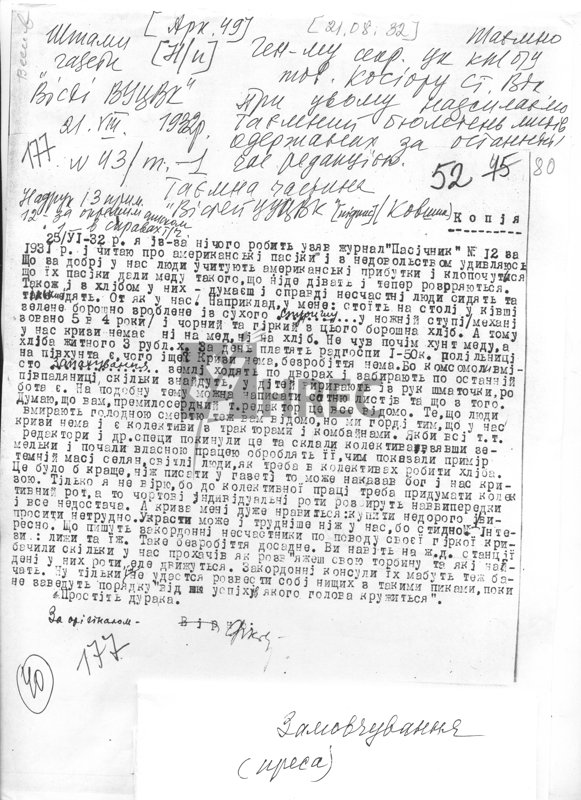 [Арк. 49]
[21.08.32]
Штамп
газети
[Н/п]
"Вісті ВУЦВК"
21. VIII. 1932р.
177 № 43/т.-1
Таємно
Ген-му секр. ЦК КП(б)У
тов. Косіору Ст. Вік
При цьому надсилаємо
Таємний бюлетень листів
одержаних за останній
час редакцією.
Таємна частина
"Вістей ВУЦВК [підпис] /Ковтша/
52 45 80
Надрук 13 прим.
12 - за окремим списком
1 - в справах т/ч
Копія
25/VI-32 р. я ів-за нічого робить узяв журнал "Пасічник" № 12 за
1931 р. і читаю про американські пасіки і з недовольством удивляюсь
Що за добрі у нас люди учитують американські прибутки і клопочуться
що їх пасіки дали меду такого, що ніде дівать і тепер розоряються.
Також і з хлібом у них - думаєш і справді несчастні люди сидять та
їдять. От як у нас/ Наприклад, у мене: стоїть на столі у ківші
зелене борошно зроблене із сухого ... у ножній ступі/механі
зовано 5 в 4 роки/ і чорний та гіркий з цього борошна хліб. А тому
у нас кризи немає ні на мед, ні на хліб. Не чув почім хунт меду, а
хліба житного 3 рубл.х. За день платять радгоспи 1-50к. полільниці
на півхунта є чого іще/ Кризи нема, безробіття нема. Во комсомол вмі-
сто землі ходе по дворах і забирають по останній
півпаляниці, скільки знайдуть ... із рук шматочки, ро
бота є. На подобну тему можна написать сто листів та що з того.
Думаю, що вам, премилосердний редактор відомо. Те, що люди
вмирають голодною смертю теж вам відомо, но ми горді тим, що у нас
кризи нема і є колективи з тракторами і комбайнами. Якби всі т.т.
редактори і др. специ покинули це та склали колектива, взявши зе-
мельки і почали власною працею оброблять її, чим показали примір
темній масі селян, світлі люди, як треба в колективах робити хліба.
Це було б краще, ніж писати у газеті то може наказав бог і нас кри-
зою. Тільки я не вірю, бо до колективної праці треба придумати колек
тивний рот, а то чортові індивідуальні роти розвирують наввипередки
і все недостача. А криза мені дуже нравиться: купити недорого і ви-
просити нетрудно. Украсти може і трудніше ніж у нас, бо стидно. Інте-
ресно. Що пишуть закордонні несчастники по поводу своєї гіркої кри-
зи: лижи та їж. Таке безробіття досадне. Ви навіть на ж.д. станції
бачили скільки у нас прохачів а як розв'яжеш свою торбину та які най-
дені у них роти, еле движуться. Закордонні консули їх мабуть теж ба-
чать. Ну тільки їм не удастся розвести собі нищих з такими пиками, поки
не заведуть порядку від яких успіхів якого голова кружиться".
Простіть дурака.
За оригіналом -
177
40
АНПЕС
Замовчування
(преса)